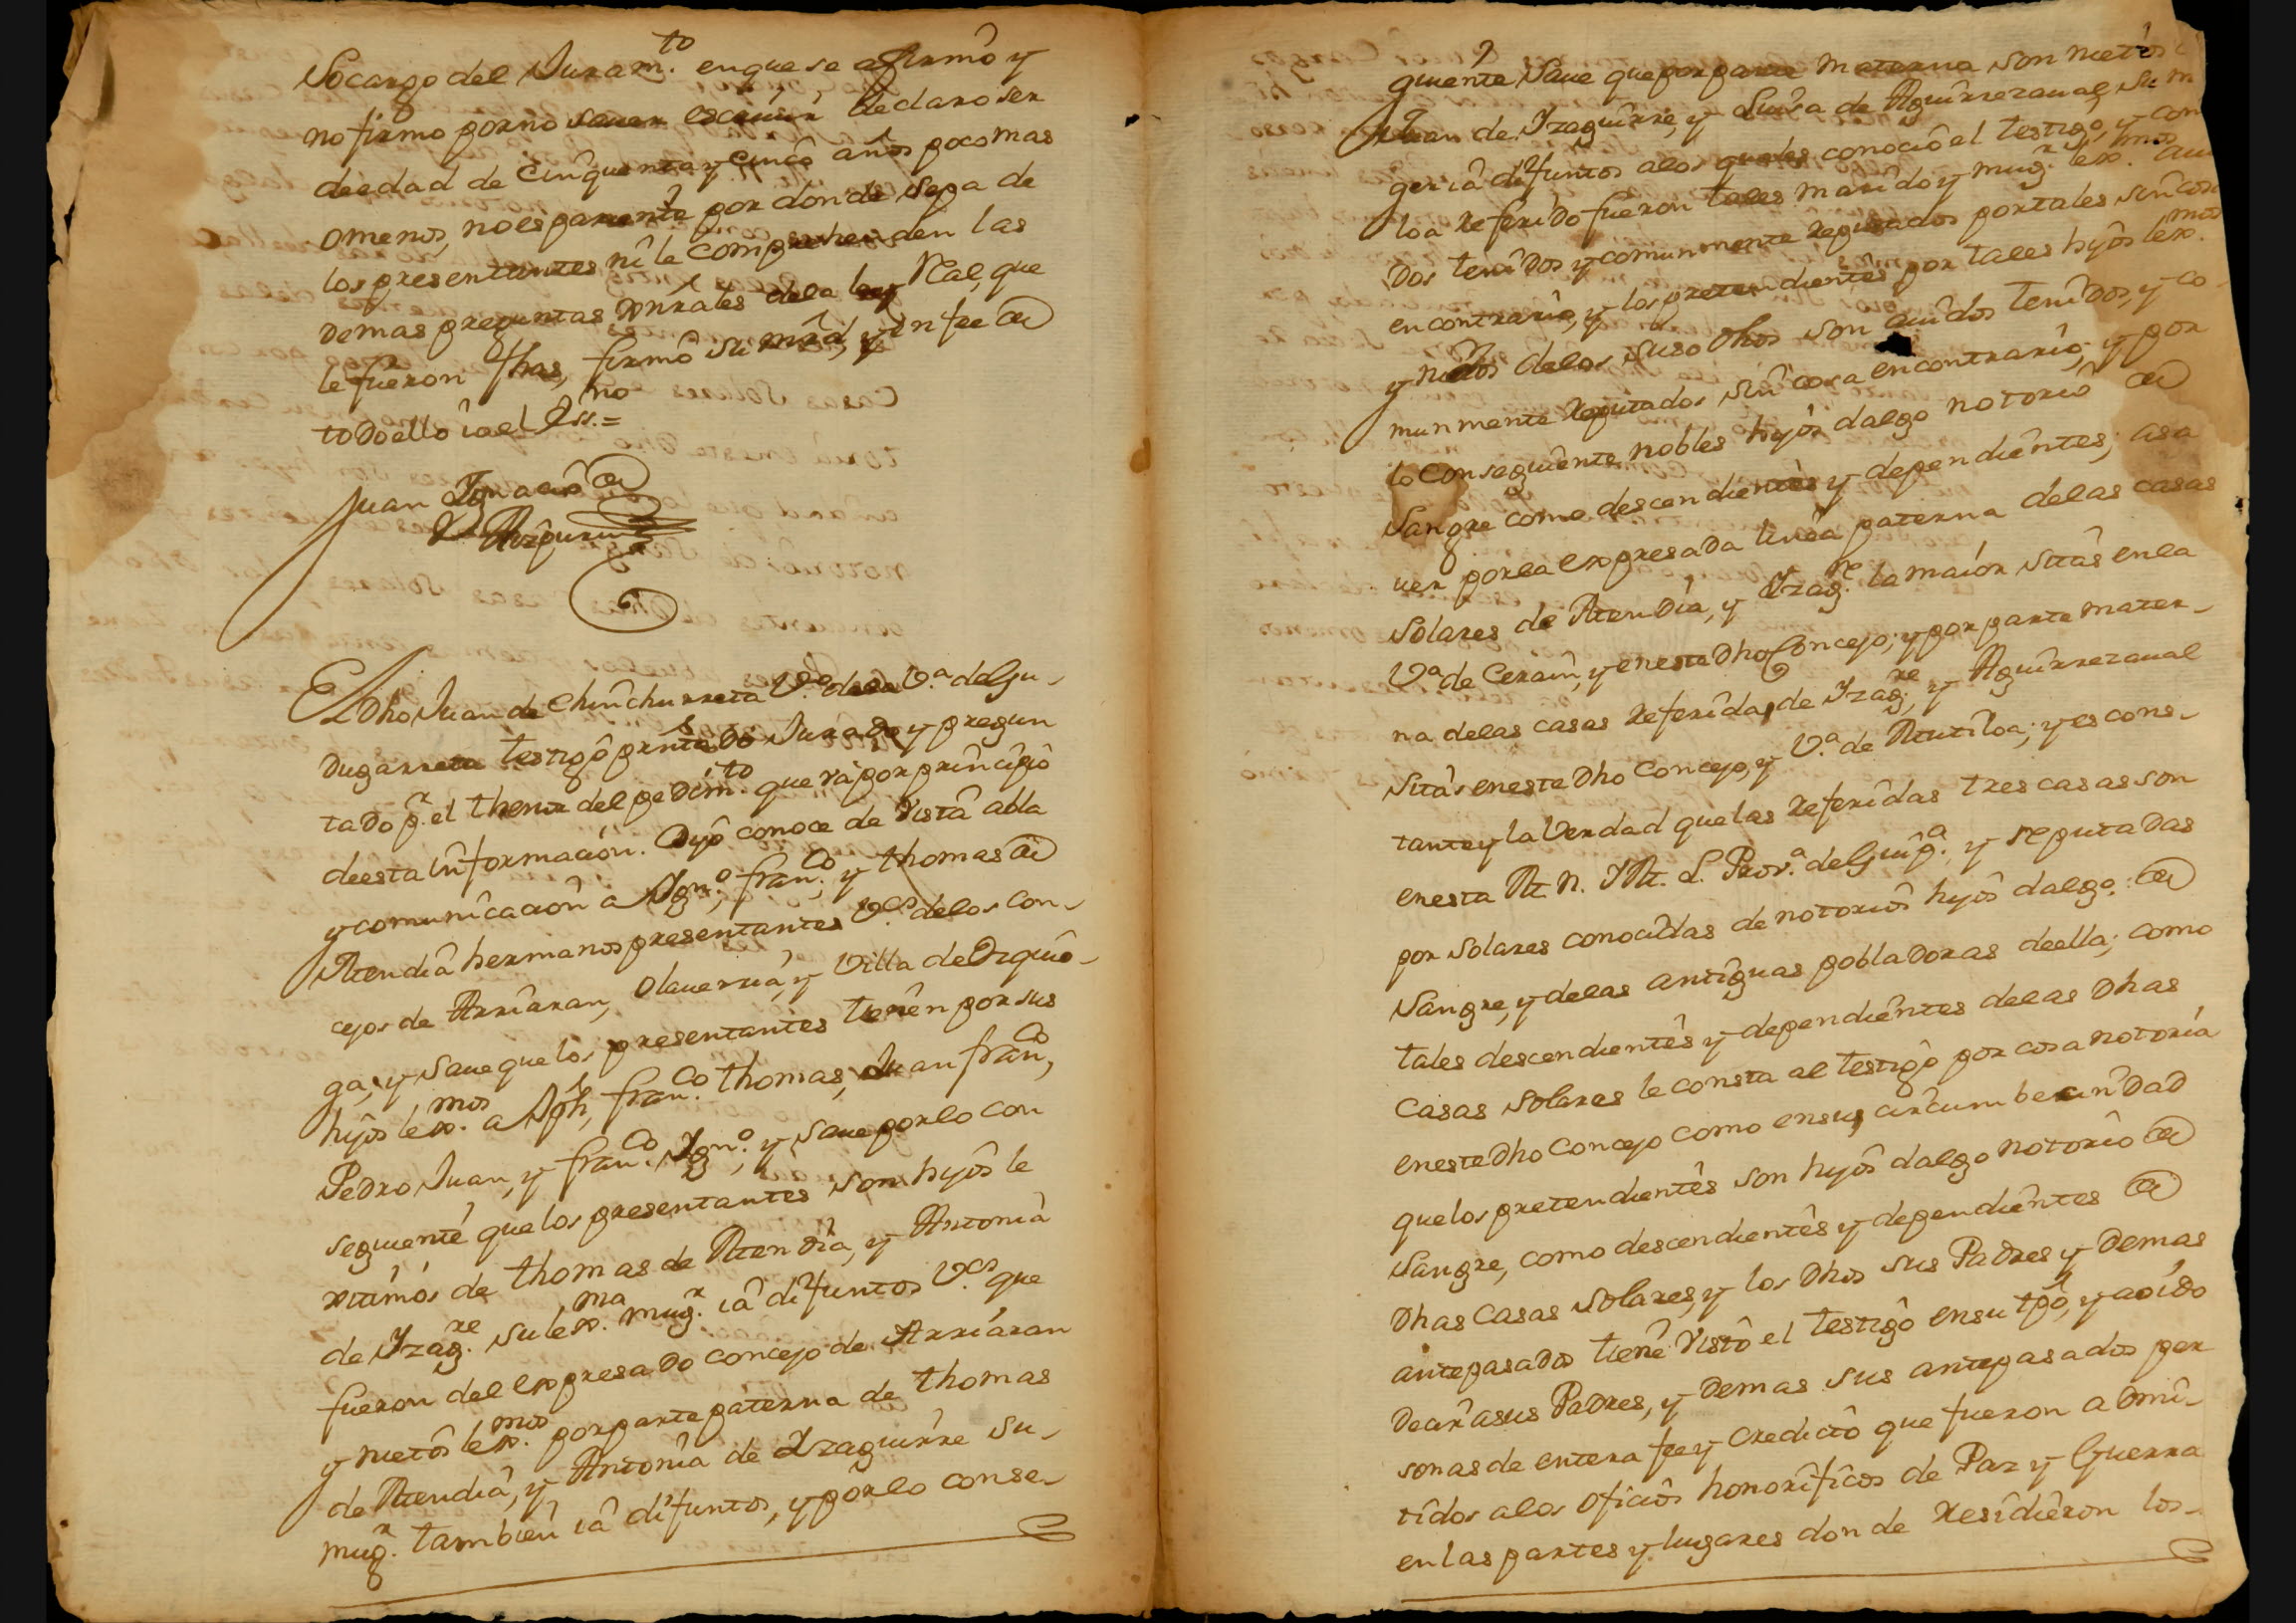 Socargo del Juram.to en que se afirmò y
no firmo por no saver escriuir declaro ser
de edad de Cinquenta y cinco años poco mas
omenos, no es pariente por donde sepa de
los presentantes ni le comprehenden las
demas preguntas Gnrales dela ley Real, que
le fueron fhas, firmò su mrd, y en fee de
todo ello ia el Ess.no =
Juan Ignacio de
Aizpuru
El Dho Juan de Chinchurreta V.o dela V.a de Gu-
dugarreta testigo prntado Jurado y pregun
tado p.r el thenor del pedim.to que và por principio
de esta informacion. Dijo conoce de Vista abla
y comunicacion a Ign.o, fran.co, y thomas de
Atendia hermanos presentantes V.os delos con-
cejos de Arriaran, Olauerria, y Villa de Ozquio-
ga, y Saue que los presentantes tienen por sus
hijos lex.mos a Jph, fran.co thomas, Juan fran.co,
Pedro Juan, y fran.co Ign.o, y Saue por lo con
seguiente que los presentantes son hijos le
xitimos de thomas de Atendia, y Antonia
de Yzag.re su lex.ma mug.r ia difuntos V.os que
fueron del expresado concejo de Arriaran
y nietos lex.mos por parte paterna de thomas
de Atendia, y Antonia de Yzaguirre su-
mug.r tambien ia difuntos, y por lo conse-
guiente Saue que por parte materna son nietos
Juan de Yzaguirre, y Luisa de Aguirrezaual su m
ger ia difuntos alos quales conociò el testigo, y com
loa referido fueron tales marido y mug.r lex.mos aui
dos tenidos y comunmente reputados por tales sin cosa
en contrario, y los pretendientes por tales hijos lex.mos
y nietos delos suso Dhos son auidos tenidos, y co-
munmente reputados sin cosa en contrario; y por
lo Conseguiente nobles hijos dalgo notorio de
Sangre como descendientes y dependientes; asa
uer por la expresada linea paterna delas casas
Solares de Atendia, y Yzag.re la maior sitas en la
V.a de Cerain, y en este Dho Concejo; y por parte mater-
na delas casas referidas de Yzag.re, y Aguirrezaual
Sitas en este Dho Concejo, y V.a de Mutiloa; y es cons-
tante y la Verdad que las referidas tres casas son
en esta M. N. Y M. L. Prov.a de Guip.a y reputadas
por Solares conocidas de notorios hijos dalgo de
Sangre, y delas antiguas pobladoras de ella; como
tales descendientes y dependientes delas Dhas
Casas Solares le consta al testigo por cosa notoria
en este Dho Concejo como en su circumbecindad
que los pretendientes son hijos dalgo notorio de
Sangre, como descendientes y dependientes de
Dhas Casas Solares, y los Dhos sus Padres y demas
antepasados tiene Visto el testigo en su tpo, y aoido
decir asus Padres, y demas sus antepasados per
sonas de entera fee y credicto que fueron admi-
tidos alos oficios honorificos de Paz y Guerra
en las partes y lugares donde residieron los-